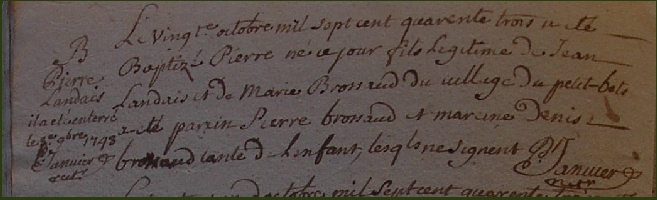 B
Pierre
Landais
il a ete enterré
le 9bre 1748
Janvier
Le vingte octobre mil sept cent quarente trois a eté
Baptizé Pierre ne ce jour fils Legitime de Jean
Landais et de Marie Brossaud du village du petit-bois
a eté parain Pierre brossaud et maraine Denise
brossaud tante de Lenfant, lesqls ne signent Janvier
octobre mil sept cent quarente trois